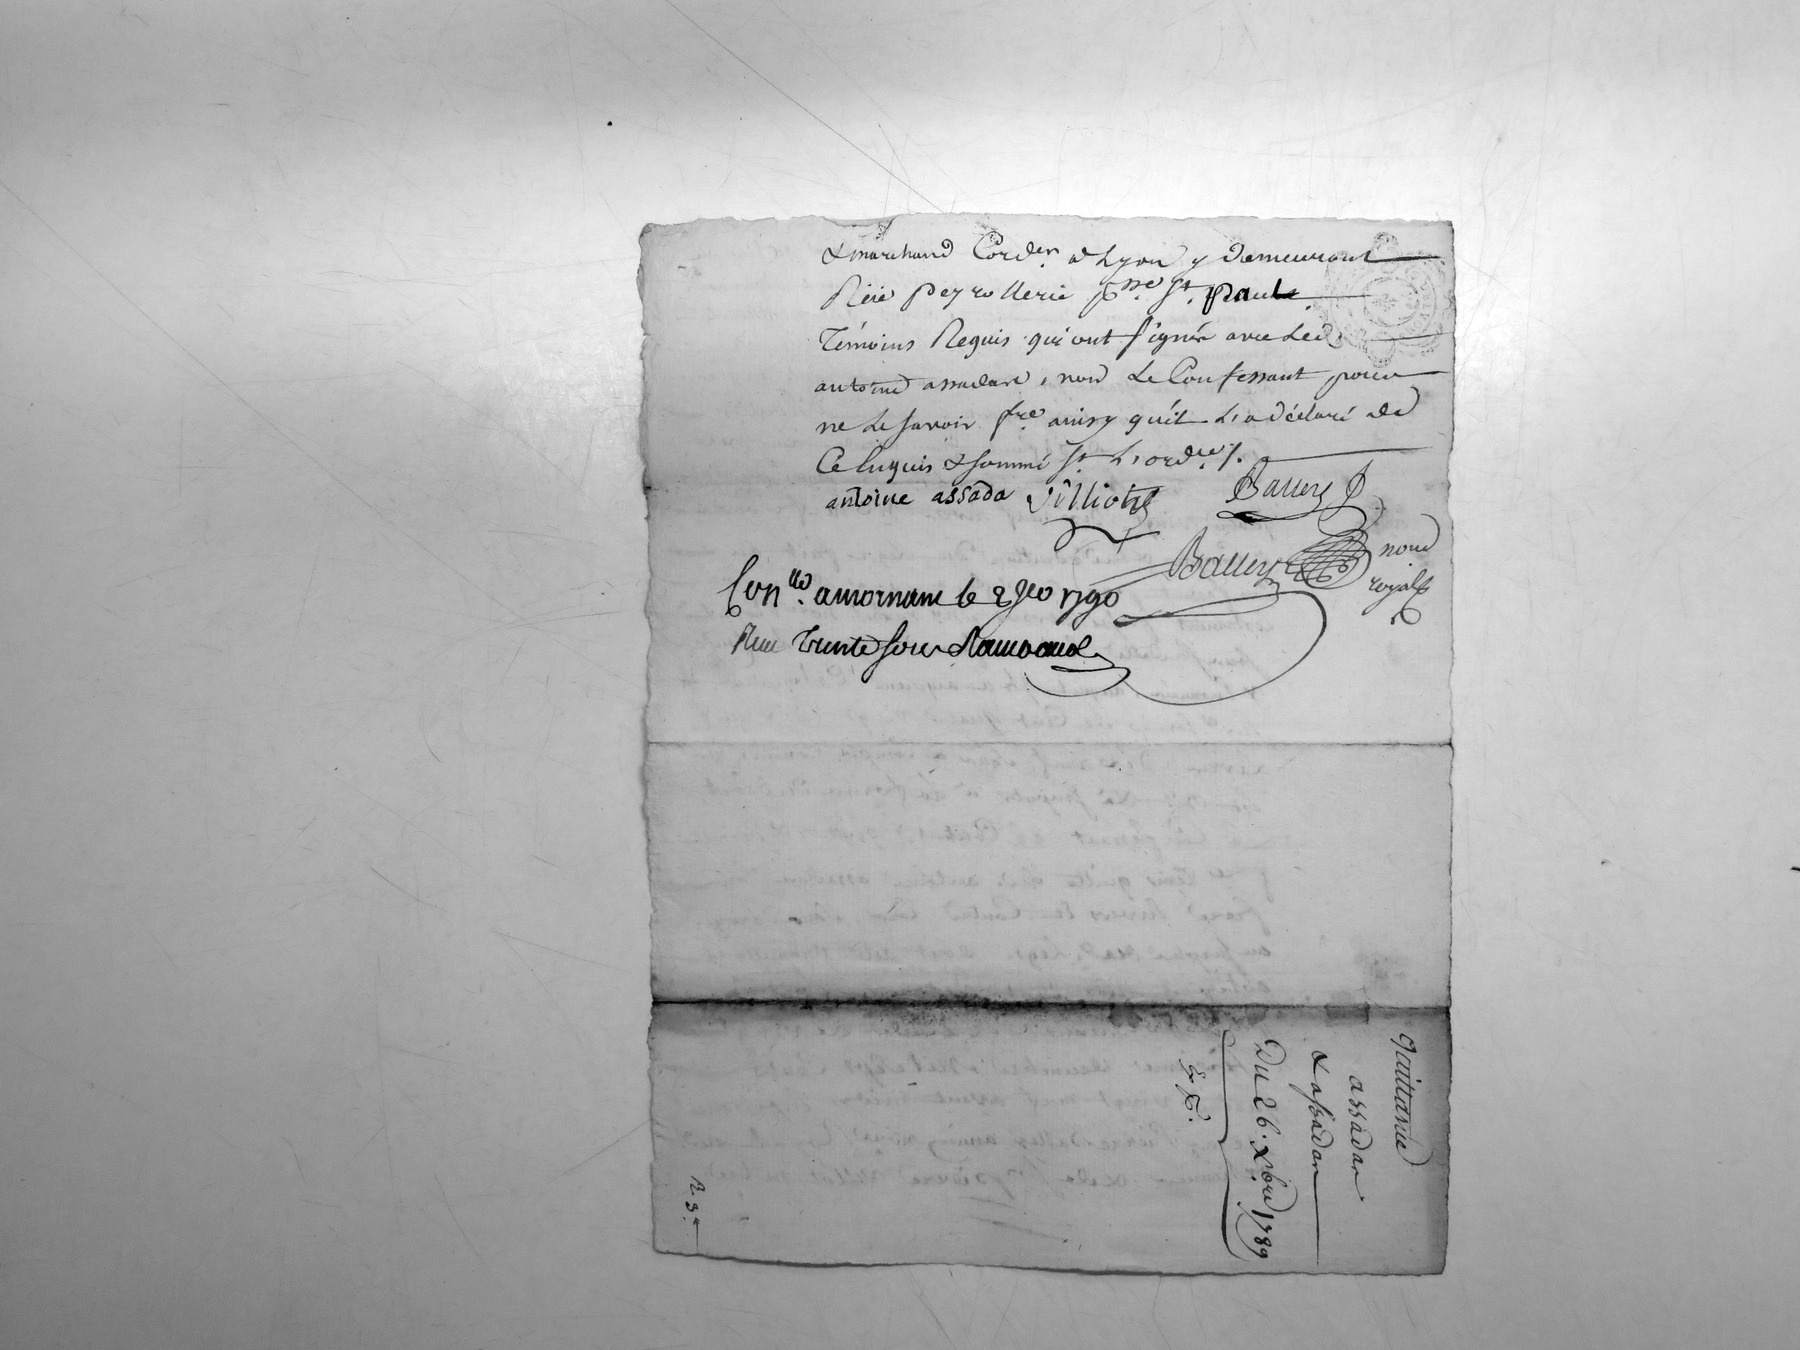 & marchand Corder a Lyon y demeurant
Rüe peyrollerie psse St. paul
Témoins Requis qui ont signés avec led.
antoine assadar, non Le Confessant pour
ne le savoir fre ainsy qu'il L'a déclaré de
Ce Enquis & sommé St. L'ordce /.
antoine assada Villiot Balley
Balley nore
royal
Conllé a mornant le 2 Jer 1790
Reçu Trente sous
Quittance
assadar
& assadar
Du 26. Xbre 1789
R 3